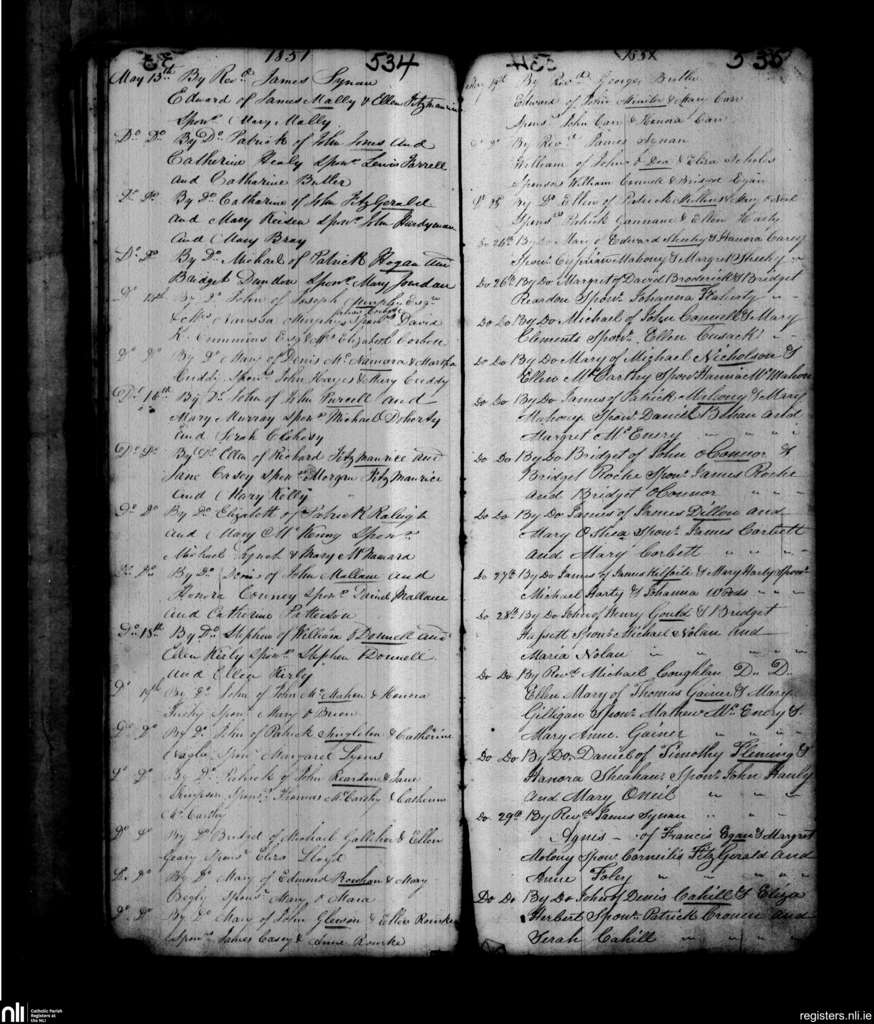 1851 534
May 13th By Revd. James Synan
Edward of James Mally & Ellen Fitzmaurice
Sponrs Mary Mally
Do. Do. By Do. Patrick of John Jones and
Catherine Healy Sponrs Lewis Farrell
and Catharine Butler
Do. Do. By Do. Catharine of John FitzGerald
and Mary Sponrs John Hurdyman
and Mary Bray
Do. Do. By Do. Michael of Patrick Hogan and
Bridget Dundon Sponrs Mary Jourdan
Do. 14th By Do. John of Joseph Murphy Esqre
& Mrs Murphy Sponrs David
K. Cummins Esq & Mrs Elizabeth Corbon
Do. Do. By Do. Mary of Denis McNamara & Martha
Cuddy Sponrs John Hayes & Mary Cuddy
Do. 16th By Do. John of John Purcell and
Mary Murray Sponrs Michael Doherty
and Sarah
Do. Do. By Do. Ellen of Richard Fitzmaurice and
Jane Casey Sponrs Morgan FitzMaurice
and Mary Kelly
Do. Do. By Do. Elizabeth of Patrick Raleigh
and Mary McKenny Sponrs
Michael Lynch & Mary McNamard
Do. Do. By Do. Denis of John Mallane and
Honora Conney Sponrs David Mallane
and Catherine Patterson
Do. 18th By Do. Stephen of William ODonnell and
Ellen Kirby Sponrs Stephen Donnell
and Ellen Kirby
Do. 19th By Do. John of John McMahon & Honora
Sponrs Mary O Brien
Do. Do. By Do. John of Patrick Singleton & Catherine
Nagle Sponrs Margaret Lyons
Do. Do. By Do. Patrick of John Reardon & Jane
Simpson Sponrs Thomas McCarthy & Catherine
McCarthy
Do. Do. By Do. Bridget of Michael Galliher & Ellen
Geary Sponrs Eliza Lloyd
Do. Do. By Do. Mary of Edmond & Mary
Begly Sponrs Mary O Mara
Do. Do. By Do. Mary of John Gleeson & Ellen Rourke
Sponrs James Casey & Anne Rourke
535
19th By Revd. George Butler
Edward of John Minitor & Mary Carr
Sponrs John Carr & Honora Carr
By Revd. James Synan
William of John O Dea & Eliza Scholes
Sponsors William Connell & Bridget Egan
Do. 25 By Do. Ellen of Patrick Mullins & Mary O Neil
Sponrs Patrick Gannane & Ellen Harty
Do 26th By Do Mary of Edward Sheehy & Hanora Carey
Sponr Cyprian Mahony & Margret Sheehy
Do 26th By Do Margret of David Broderick & Bridget
Reardon Sponr Johanna Flaherty
Do Do By Do Michael of John Cancell & Mary
Clements Sponr. Ellen Cusack
Do Do By Do Mary of Michael Nicholson &
Ellen McCarthy Sponr Hannia McMahon
Do Do By Do James of Patrick Mahony & Mary
Mahony Sponr Daniel Behan and
Margret McEnery
Do Do By Do Bridget of John OConnor &
Bridget Roche Sponr James Roche
and Bridget OConnor
Do Do By Do James of James Dillon and
Mary O Shea Sponr. James Corbett
and Mary Corbett
Do 27th By Do James of James & Mary Harty Sponr
Michael Harty & Johanna Woods
Do 28th By Do John of Henry Gould & Bridget
Hassett Sponr Michael Nolan and
Maria Nolan
Do Do By Revd Michael Coughlan D. D.
Ellen Mary of Thomas Gainer & Mary
Gilligan Sponr Mathew McEnery &
Mary Anne Gainer
Do Do By Do. Daniel of Timothy Fleming &
Hanora Sheahan Sponr John Hanly
and Mary ONeil
Do 29th By Revd James Synan
Agnis - of Francis Egan & Margret
Molony Sponr Cornelius FitzGerald and
Anne Foley
Do Do By Do John of Denis Cahill & Eliza
Herbert Sponr. Patrick Cronin and
Sarah Cahill
nli Catholic Parish
Registers at
the NLI
registers.nli.ie